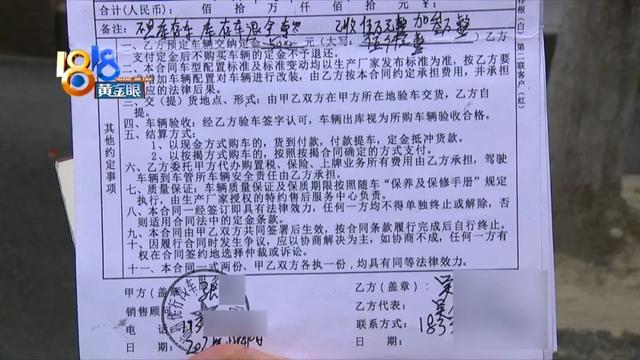 合计(人民币): 佰 拾 万 仟 佰 拾
备注:
二、乙方预定车辆交纳定金
支付定金后不购买车辆的定金不予退还。
三、本合同车型配置标准及标准变动均以生产厂家发布标准为准,按乙方要
加车辆配置对车辆进行改装,由乙方按本合同约定承担费用,并承担
应的法律后果。
三、交(提)货地点、形式:由甲乙双方在甲方所在地验车交货,乙方自
提。
四、车辆验收:经乙方验车签字认可,车辆出库视为所购车辆验收合格。
五、结算方式:
1、以现金方式购车的,货到付款,付款提车,定金抵冲货款。
2、以按揭方式购车的,按照按揭合同确定的方式支付。
六、乙方委托甲方代办购置税、保险、上牌业务所有费用由乙方承担,驾驶
车辆到车管所车辆安全责任由乙方承担。
七、质量保证:车辆质量保证及保质期限按照随车“保养及保修手册”规定
执行,由生产厂家授权的特约售后服务中心负责。
八、本合同一经签订即具有法律效力,任何一方均不得单独终止或解除,否
则适用合同法中的定金条款。
九、本合同由甲乙双方共同签署后生效,按合同条款履行完成后自行终止。
十、因履行合同时发生争议,应以协商解决为主,如协商不成,任何一方有
权在合同签约地选择仲裁或诉讼。
十一、本合同一式两份、甲乙双方各执一份,均具有同等法律效力。
其他约定事项
第二联客户(红)
甲方(盖章
销售顾
电 话
日 期:
乙方(盖章):
乙方代表:
联系方式:
日 期:
1818
黄金眼